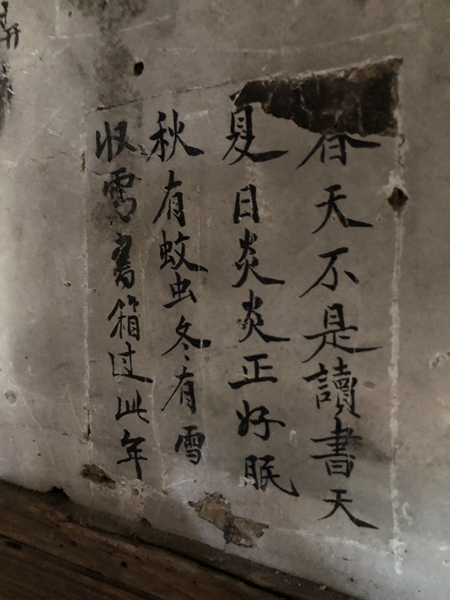 春天不是讀書天
夏日炎炎正好眠
秋有蚊虫冬有雪
収書箱过此年